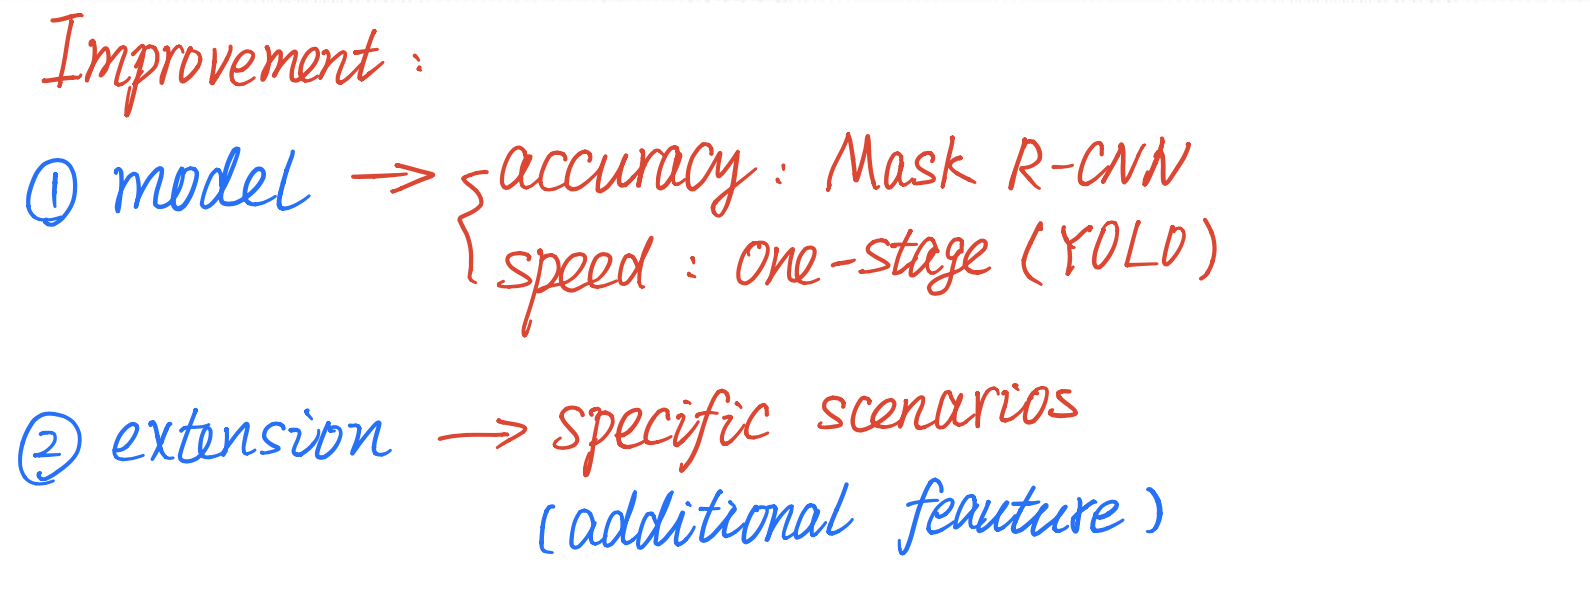 Improvement :
① model → { accuracy : Mask R-CNN
speed : one-stage (YOLO)
② extension → specific scenarios
(additional feauture)